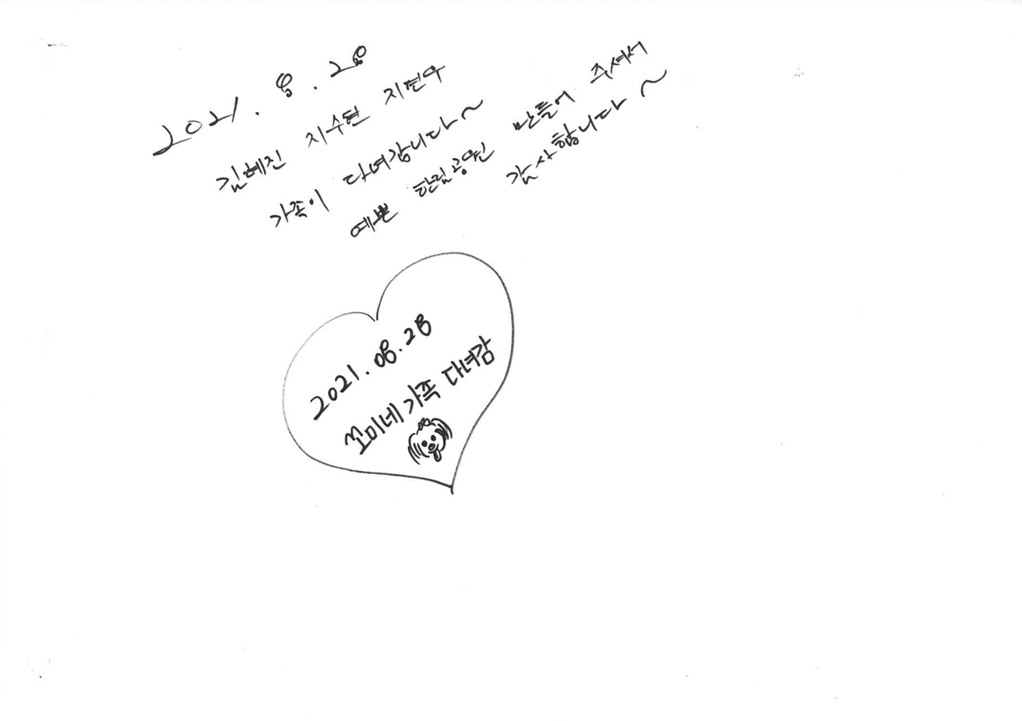 2021. 8. 28
김혜진 지수현 지현우
가족이 다녀갑니다~
예쁜 한림공원 만들어 주셔서
감사합니다~
2021.08.28
꼬미네 가족 다녀감